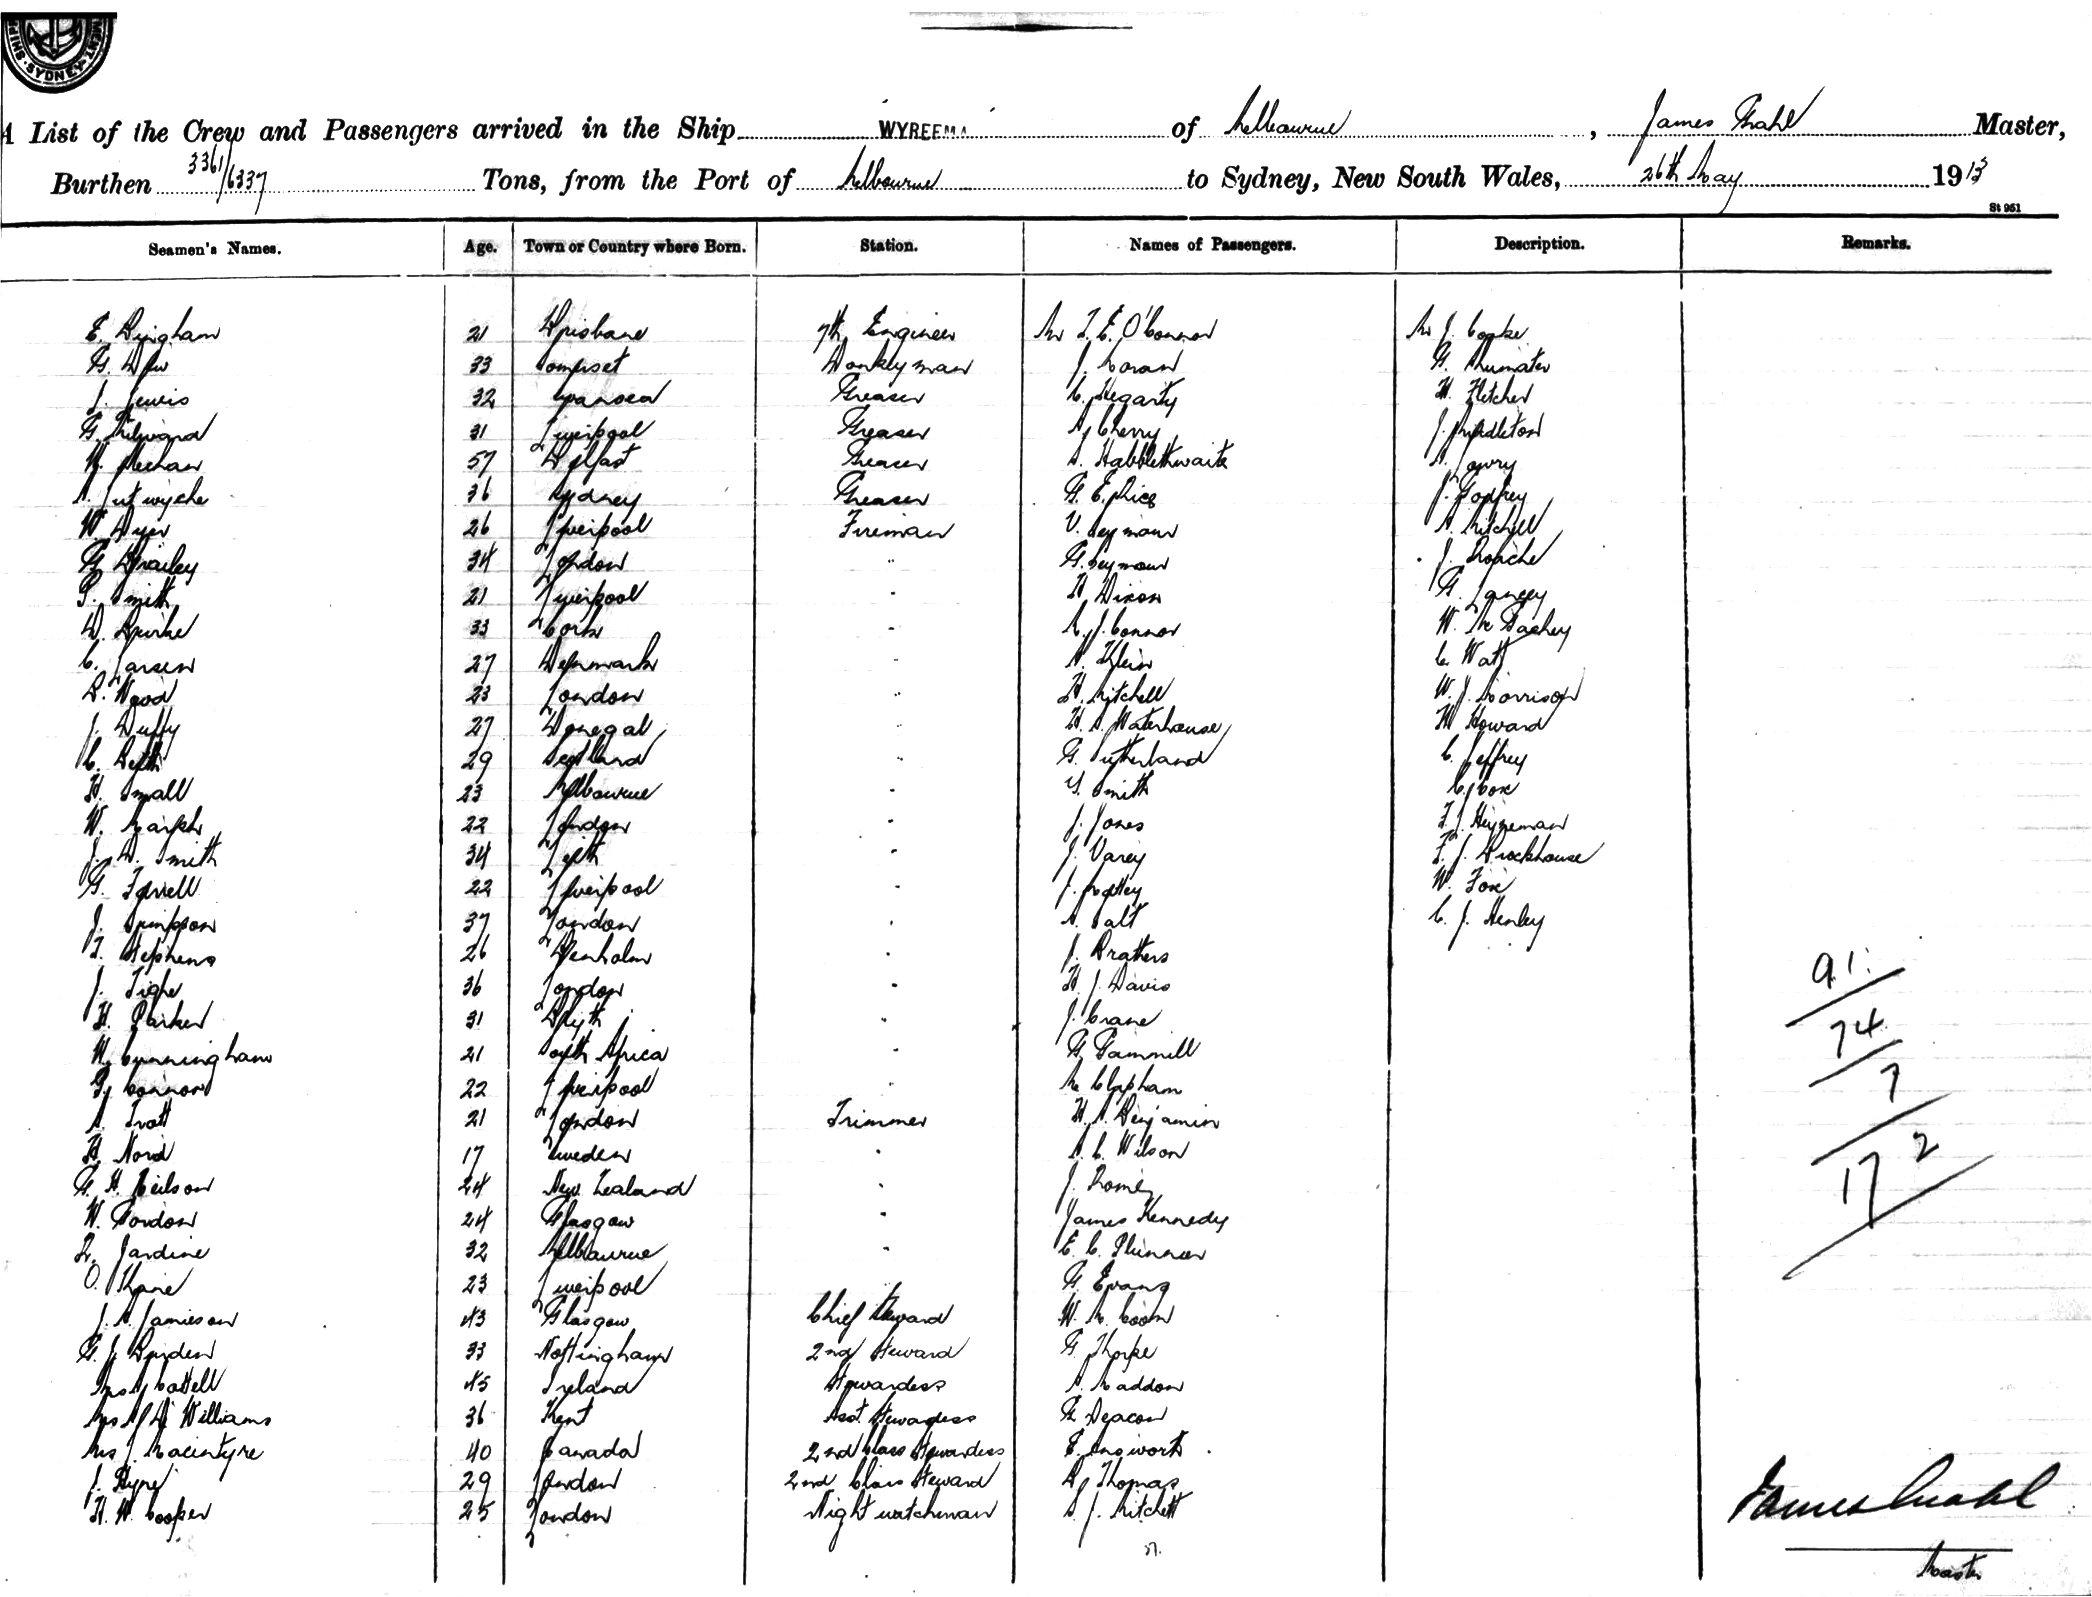 SYDNEY
A List of the Crew and Passengers arrived in the Ship WYREEMA of Melbourne, James Master,
Burthen 3361/6337 Tons, from the Port of Melbourne to Sydney, New South Wales, 26th May 1913
St 951
Seamen's Names. Age. Town or Country where Born. Station. Names of Passengers. Description. Remarks.
E. Bingham 21 Brisbane 7th Engineer Mr T. E. O'Connor Mr J. Cooke
G. Dew 33 Somerset Donkeyman J. Moran G.
J. Lewis 32 Swansea Greaser C. Hegarty H. Fletcher
G. 31 Liverpool Greaser A. Cherry J. Middleton
W. Meehan 57 Belfast Greaser A. Habblethwaite A. Lowry
A. Lutwyche 36 Sydney Greaser G. E. Rice J. Godfrey
W. Dyer 26 Liverpool Fireman V. Seymour A. Mitchell
G. Brailey 34 London " G. Seymour J. Roache
S. Smith 21 Liverpool " H. Dixon G.
D. Burke 33 Cork " M. J. Connor W. McGachey
C. Larsen 27 Denmark " A. Klein C. Watt
R. Wood 23 London " H. Mitchell W. J. Morrison
J. Duffy 27 Donegal " H. A. Waterhouse H. Howard
C. Beith 29 Scotland " G. Sutherland C. Jeffrey
H. Small 23 Melbourne " Y. Smith C. Cox
W. 22 London " J. Jones F. J. Heyneman
J. D. Smith 34 Leith " J. Varey F. J. Brockhouse
G. Farrell 22 Liverpool " J. W. Fox
J. Simpson 37 London " A. Salt C. J. Henley
T. Stephens 26 Denholm " J. Brothers
J. Tighe 36 London " H. J. Davis
H. Parker 31 Blyth " J. Crane
W. Cunningham 21 South Africa " G. Gammill
G. Connor 22 Liverpool " M. Clapham
A. Trott 21 London Trimmer H. A. Benjamin
H. Nord 17 Sweden " A. C. Wilson
G. H. Neilson 24 New Zealand " J.
W. Gordon 24 Glasgow " James Kennedy
L. Jardine 32 Melbourne " E. C. Plummer
O. Kane 23 Liverpool G. Evans
J. A. Jamieson 43 Glasgow Chief Steward W. M. Coom
G. J. Burden 33 Nottingham 2nd Steward G. Thorpe
Mrs A. Cottell 45 Ireland Stewardess A. Maddon
Mrs A. D. Williams 36 Kent Asst. Stewardess G. Deacon
Mrs J. Macintyre 40 Canada 2nd Class Stewardess E. Ainsworth
J. Eyre 29 London 2nd Class Steward D. Thomas
H. W. Cooper 25 London Night watchman A. J. Mitchell
37.
91
74
7
172
James
Master